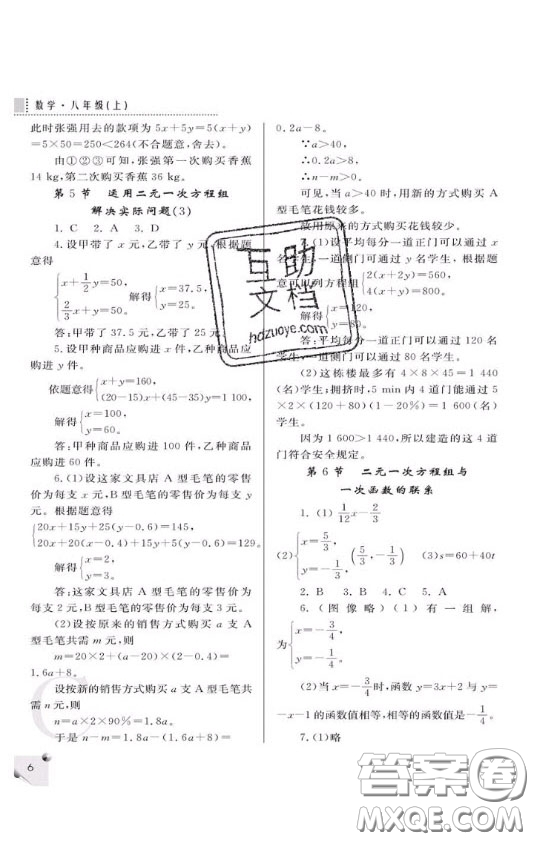 数学·八年级(上)
此时张强用去的款项为 5x+5y=5(x+y)
=5×50=250<264(不合题意,舍去)。
由①②③可知,张强第一次购买香蕉
14 kg,第二次购买香蕉 36 kg.
第 5 节 运用二元一次方程组
解决实际问题(3)
1. C 2. A 3. D
4.设甲带了 x 元,乙带了 y 元,根据题
意得
{x+1/2y=50, 2/3x+y=50. 解得{x=37.5, y=25.
答:甲带了 37.5 元,乙带了 25 元.
5.设甲种商品应购进 x 件,乙种商品应
购进 y 件。
依题意得{x+y=160, (20-15)x+(45-35)y=1 100,
解得{x=100, y=60.
答:甲种商品应购进 100 件,乙种商品
应购进 60 件.
6.(1)设这家文具店 A 型毛笔的零售
价为每支 x 元,B 型毛笔的零售价为每支 y
元。根据题意得
{20x+15y+25(y-0.6)=145, 20x+20(x-0.4)+15y+15(y-0.6)=129.
解得{x=2, y=3.
答:这家文具店 A 型毛笔的零售价为
每支 2 元,B 型毛笔的零售价为每支 3 元.
(2)设按原来的销售方式购买 a 支 A
型毛笔共需 m 元,则
m=20×2+(a-20)×(2-0.4)=
1.6a+8.
设按新的销售方式购买 a 支 A 型毛笔共
需 n 元,则
n=a×2×90%=1.8a.
于是 n-m=1.8a-(1.6a+8)=
6
0.2a-8.
∵a>40,
∴0.2a>8.
∴n-m>0.
可见,当 a>40 时,用新的方式购买 A
型毛笔花钱较多.
故用原来的方式购买花钱较少。
7.(1)设平均每分一道正门可以通过 x
名学生,一道侧门可以通过 y 名学生,根据题
意可以列方程组{2(x+2y)=560, 4(x+y)=800.
解得{x=120, y=80.
答:平均每分一道正门可以通过 120 名
学生,一道侧门可以通过 80 名学生.
(2)这栋楼最多有 4×8×45=1 440
(名)学生;拥挤时,5 min 内 4 道门能通过
5×2×(120+80)(1-20%)=1 600(名)
学生.
因为 1 600>1 440,所以建造的这 4 道
门符合安全规定。
第 6 节 二元一次方程组与
一次函数的联系
1. (1) 1/12x-2/3
(2){x=5/3, y=-1/3 (5/3,-1/3) (3)s=60+40t
2. B 3. B 4. C 5. A
6. (图像略)(1)有一组解,
为{x=-3/4, y=-1/4.
(2)当 x=-3/4时,函数 y=3x+2 与 y=
-x-1 的函数值相等,相等的函数值是-1/4.
7.(1)略
互助
文档
hdzuoye.com
答案圈
MXQE.COM